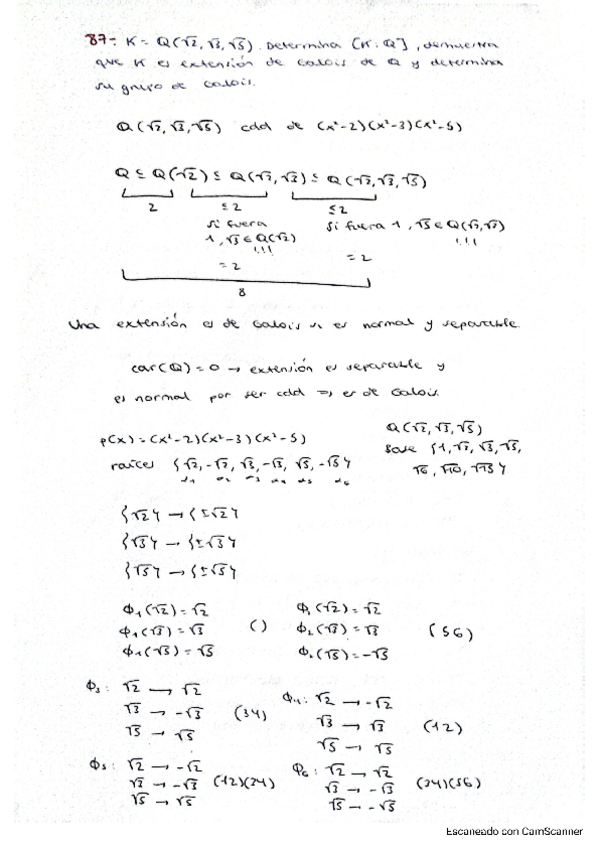 87- K = Q(√2, √3, √5). Determina [K:Q], demuestra
que K es extensión de Galois de Q y determina
su grupo de Galois.
Q(√2, √3, √5) cdd de (x²-2)(x²-3)(x²-5)
Q ⊆ Q(√2) ⊆ Q(√2, √3) ⊆ Q(√2, √3, √5)
2 ≤2 ≤2
si fuera si fuera 1, √5 ∈ Q(√2, √3)
1, √3 ∈ Q(√2) !!!
!!! = 2
= 2
8
Una extensión es de Galois si es normal y separable.
car(Q) = 0 → extensión es separable y
es normal por ser cdd ⇒ es de Galois.
p(x) = (x²-2)(x²-3)(x²-5)
raíces {√2, -√2, √3, -√3, √5, -√5}
α1 α2 α3 α4 α5 α6
Q(√2, √3, √5)
Base {1, √2, √3, √5,
√6, √10, √15}
{√2} → {±√2}
{√3} → {±√3}
{√5} → {±√5}
Φ1(√2) = √2 Φ2(√2) = √2
Φ1(√3) = √3 () Φ2(√3) = √3 (56)
Φ1(√5) = √5 Φ2(√5) = -√5
Φ3: √2 → √2 Φ4: √2 → -√2
√3 → -√3 (34) √3 → √3 (12)
√5 → √5 √5 → √5
Φ5: √2 → -√2 Φ6: √2 → √2
√3 → -√3 (12)(34) √3 → -√3 (34)(56)
√5 → √5 √5 → -√5
Escaneado con CamScanner